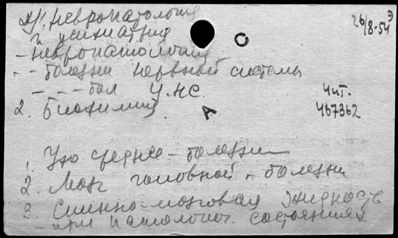 Ж. невропатологии
и психиатрии
26/8-54 Э
- невропатология
- - болезни нервной системы
- - - бол ЦНС
Чит.
467362
2. Биохимия
А
1. Ухо среднее - болезни
2. Мозг головной - болезни
3. Спинно-мозговая жидкость
при патологич. состояниях